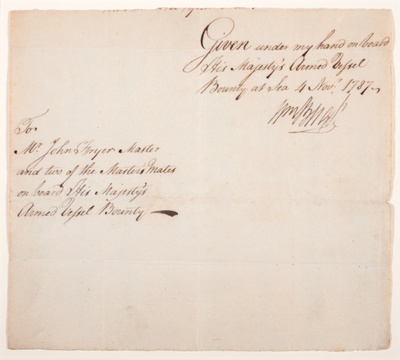 Given under my hand on board
His Majesty's Armed Vessel
Bounty at Sea 4 Novr. 1787.
Wm Bligh
To
Mr. John Fryer Master
and two of the Master's Mates
on board His Majesty's
Armed Vessel Bounty